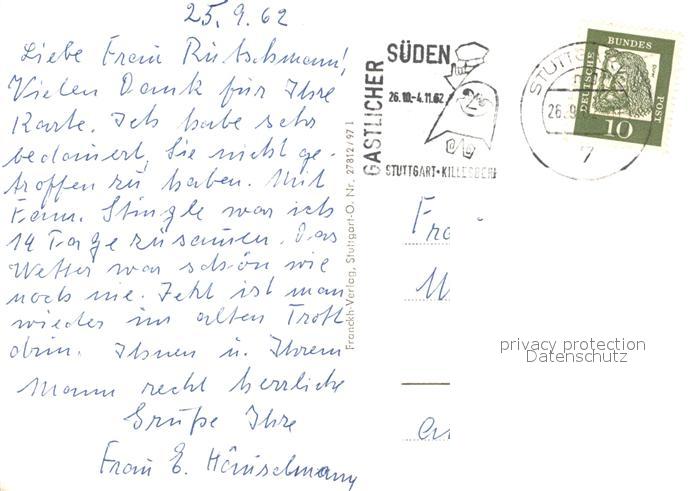 25.9.62
Liebe Frau Rutschmann!
Vielen Dank für Ihre
Karte. Ich habe sehr
bedauert, Sie nicht ge-
troffen zu haben. Mit
Fam. Stingle war ich
14 Tage zusammen. Das
Wetter war schön wie
noch nie. Jetzt ist man
wieder im alten Trott
drin. Ihnen u. Ihrem
Mann recht herzliche
Grüße Ihre
Frau E. Hänselmann
Franckh-Verlag, Stuttgart-O. Nr. 27812/97 l
GASTLICHER
SÜDEN
26.10.-4.11.62
STUTTGART-KILLESBERG
STUTTG
26.9.
7
DEUTSCHE
BUNDES
POST
10
Fra
privacy protection
Datenschutz